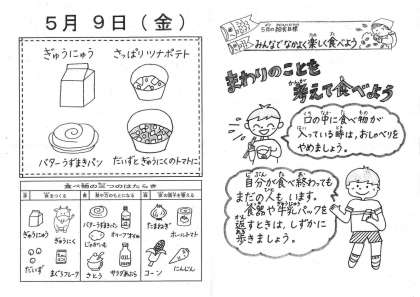 5月9日(金)
ぎゅうにゅう
さっぱりツナポテト
バターうずまきパン
だいずとぎゅうにくのトマトに
食べ物の三つのはたらき
ぎゅうにゅう
ぎゅうにく
だいず
まぐろフレーク
バターうずまきパン
じゃがいも
オリーブオイル
さとう
サラダあぶら
たまねぎ
ホールトマト
コーン
にんじん
5月の給食目標
みんなでなかよく楽しく食べよう
まわりのことを
考えて食べよう
口の中に食べ物が
入っている時は、おしゃべりを
やめましょう。
自分が食べ終わっても
まだの人もいます。
食器や牛乳パックを
返すときは、しずかに
歩きましょう。